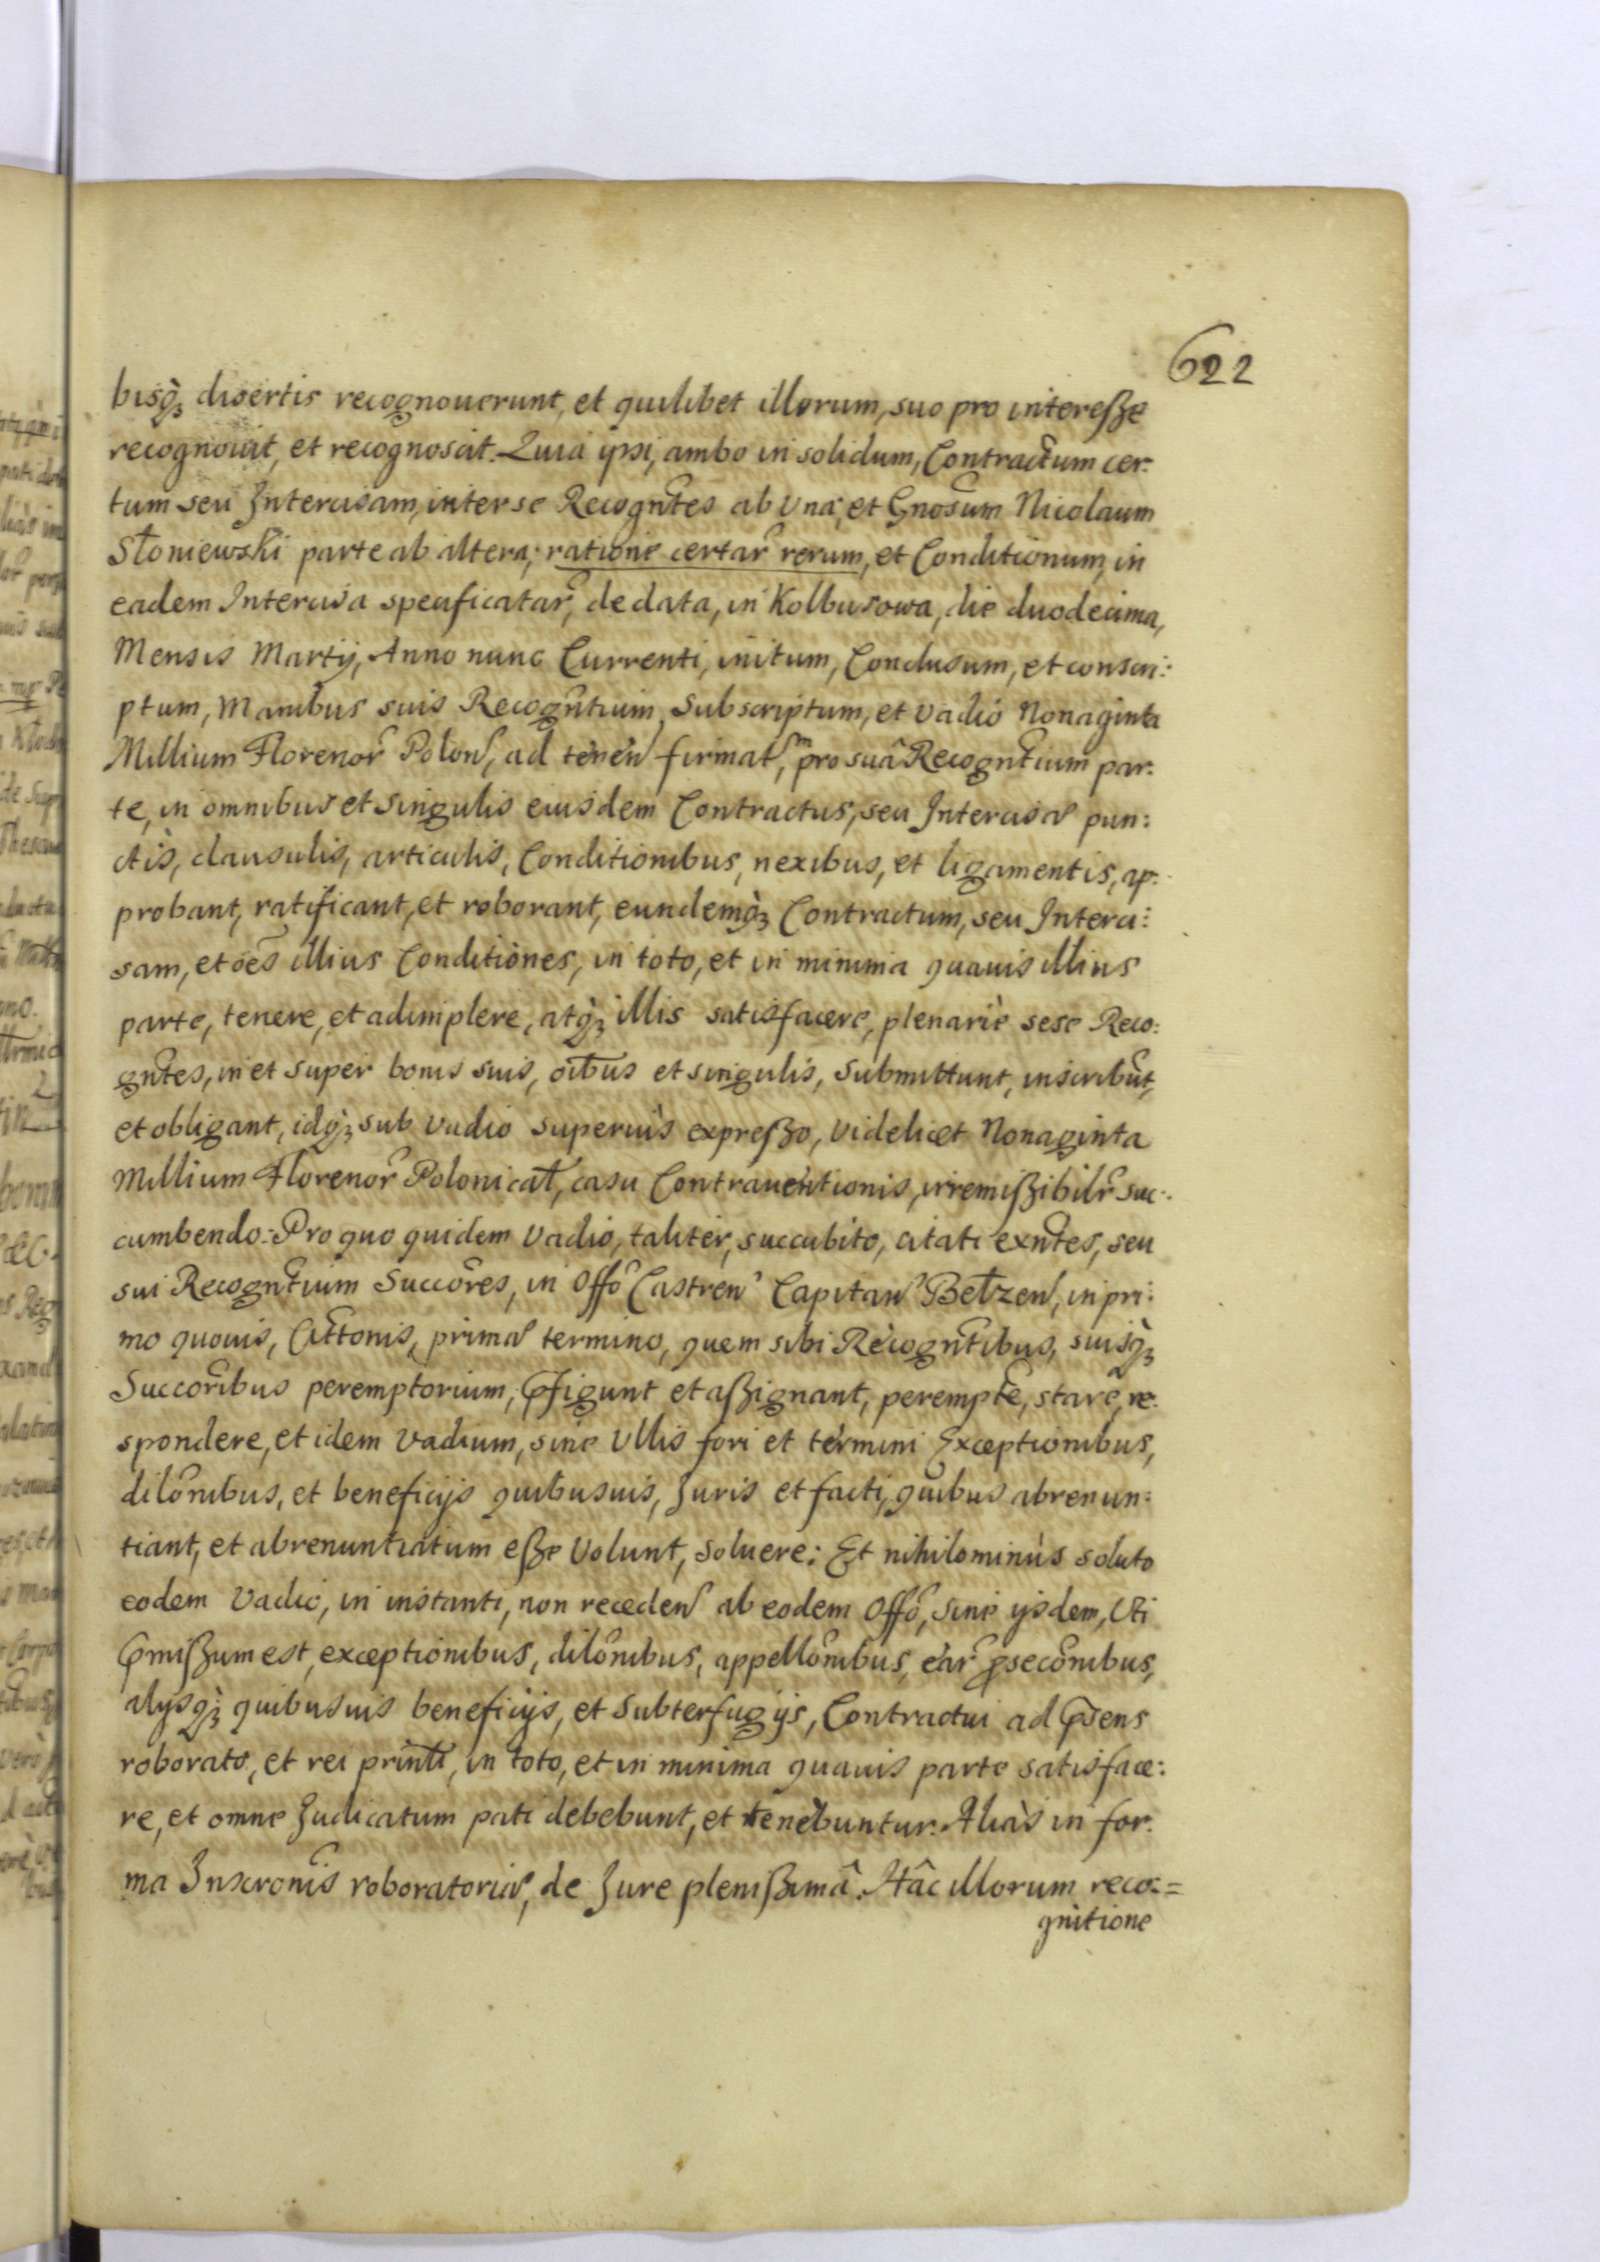 622
bisq̀ꝫ disertis recognouerunt, et quilibet illorum, suo pro intereſze
recognouit, et recognoscit. Quia ipsi, ambo in solidum, Contractum cer:
tum seu Intercisam, inter se Recogñtes ab Vna, et Gnosũm Nicolaum
Słoniewski parte ab altera; ratione certar̃ rerum, et Conditionum, in
eadem Intercisa specificatar̃, de data, in Kolbusowa, die duodecima,
Mensis Martij, Anno nunc Currenti, initum, Conclusum, et conscri:
ptum, Manibus suis Recogñtium, Subscriptum, et vadio Nonaginta
Millium Florenor̃ Polon̄, ad tenen̄ firmat̄ᵐ, pro suâ Recogñtium par:
te, in omnibus et Singulis eiusdem Contractus, seu Intercisæ pun:
ctis, clausulis, articulis, Conditionibus, nexibus, et ligamentis, ap:
probant, ratificant, et roborant, eundemq̀ꝫ Contractum, seu Interci:
sam, et oẽs illius Conditiones, in toto, et in minima quauis illius
parte, tenere, et adimplere, atq̀ꝫ illis satisfacere, plenariè sese Reco:
gñtes, in et super bonis suis, oĩbus et singulis, Submittunt, inscribũt,
et obligant, idq̀ꝫ sub vadio superiùs expreſzo, videlicet Nonaginta
Millium Florenor̃ Polonicał, casu Contrauentionis, irremiſzibilr̃ suc:
cumbendo: Pro quo quidem Vadio, taliter, succubito, citati exñtes, seu
sui Recogñtium Succõres, in Offõ Castren̄ Capitan̄ Bełzen̄, in pri:
mo quouis, Citt̃onis, primæ termino, quem sibi Recogñtibus, suisq̀ꝫ
Succoribus̃ peremptorium, p̃figunt et aſzignant, perempt̃e, stare, re:
spondere, et idem Vadium, sine Vllis fori et termini Exceptionibus,
dilõnibus, et beneficijs quibusuis, Juris et facti, quibus abrenun:
tiant, et abrenuntiatum eſze Volunt, soluere: Et nihilominùs soluto
eodem Vadio, in instanti, non receden̄ ab eodem Offõ, Sine ijsdem, Vti
p̃miſzum est, exceptionibus, dilõnibus, appellõnibus, eàr̃ p̃secõnibus,
alijsq̀ꝫ quibusuis beneficijs, et Subterfugijs, Contractui ad p̃sens
roborato, et rei prin̄li, in toto, et in minima quauis parte satisface:
re, et omne Judicatum pati debebunt, et tenebuntur. Aliàs in for:
ma Inscrõnis roboratoriæ, de Jure pleniſzimâ. Hâc illorum reco:=
gnitione